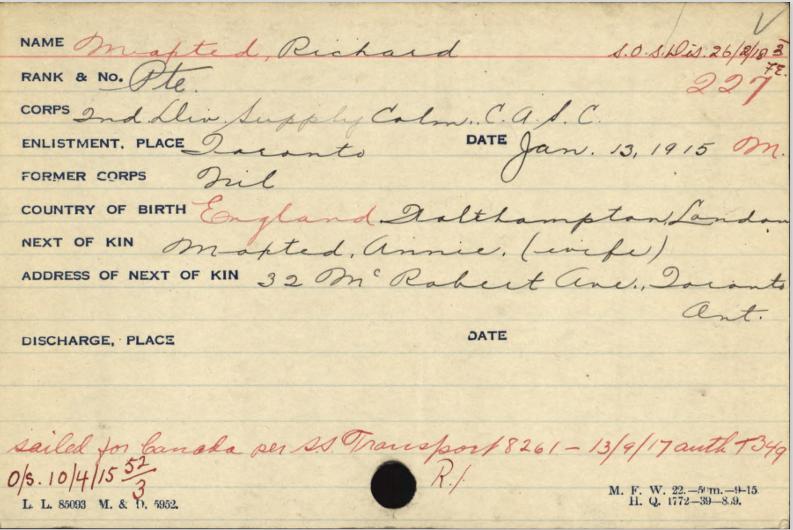 NAME Moxted, Richard S.O.S. Dis. 26/2/18
RANK & No. Pte. 227
CORPS 2nd Div. Supply Colm. C.A.S.C.
ENLISTMENT, PLACE Toronto DATE Jan. 13, 1915 M.
FORMER CORPS Nil
COUNTRY OF BIRTH England London
NEXT OF KIN Moxted, Annie. (wife)
ADDRESS OF NEXT OF KIN 32 Mc Robert Ave., Toronto
Ont.
DISCHARGE, PLACE DATE
sailed for Canada per SS Transport 8261 - 13/9/17 auth
O/S. 10/4/15 52/3 R.1
L. L. 85093 M. & D. 5952.
M. F. W. 22.—50m.—9-15.
H. Q. 1772-39-839.